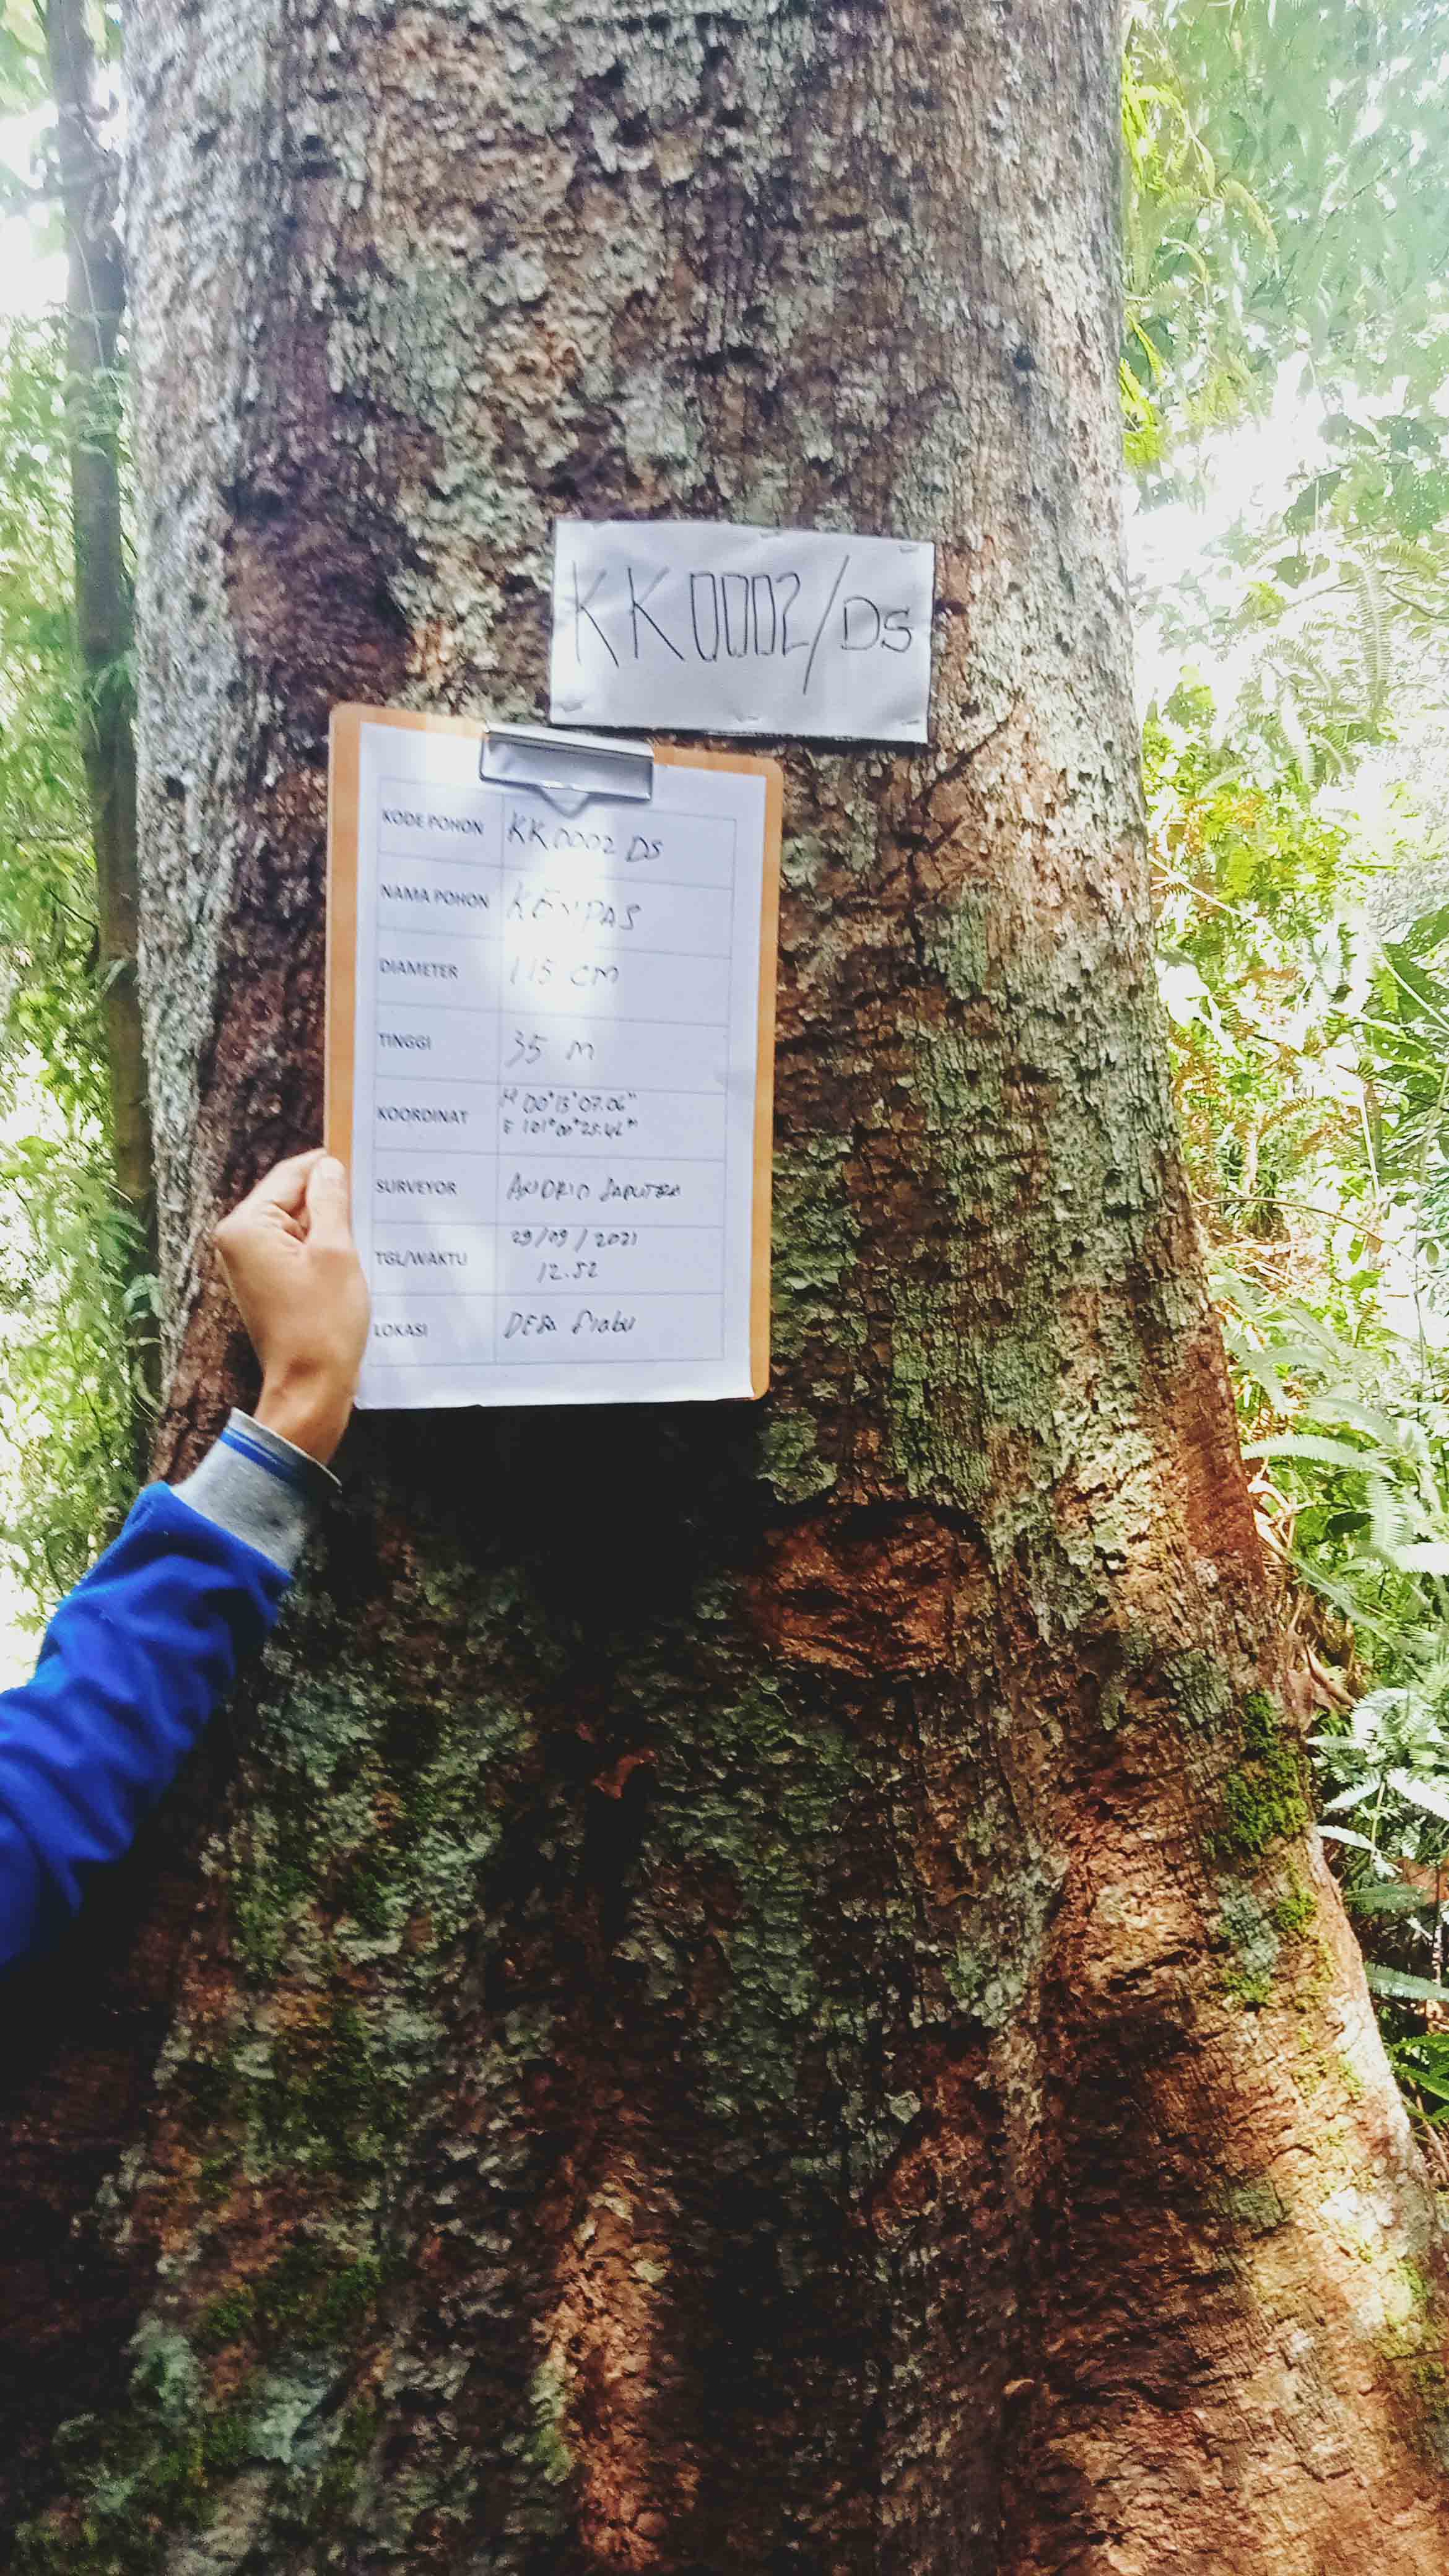 KK0002/DS
KODE POHON KK0002 DS
NAMA POHON KEMPAS
DIAMETER 115 CM
TINGGI 35 M
KOORDINAT N 00°13'07.06"
E 101°00'25.46"
SURVEYOR ANDRIO SAPUTRA
TGL/WAKTU 29/09/2021
12.52
LOKASI DESA Siabu